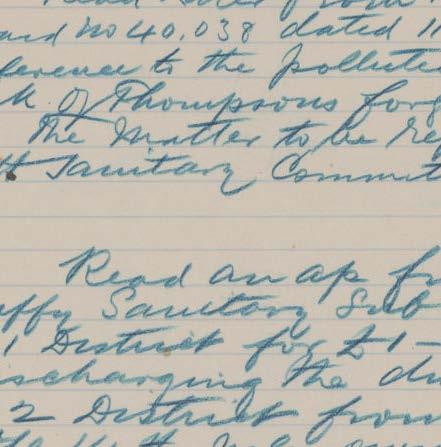 and no 40.038 dated 11
ference to the pollute
k of Thompsons forg
The Matter to be Re
Sanitary Commit
Read an ap fr
uffy Sanitary Sub
1 District for £1-
scharging the du
2 District from